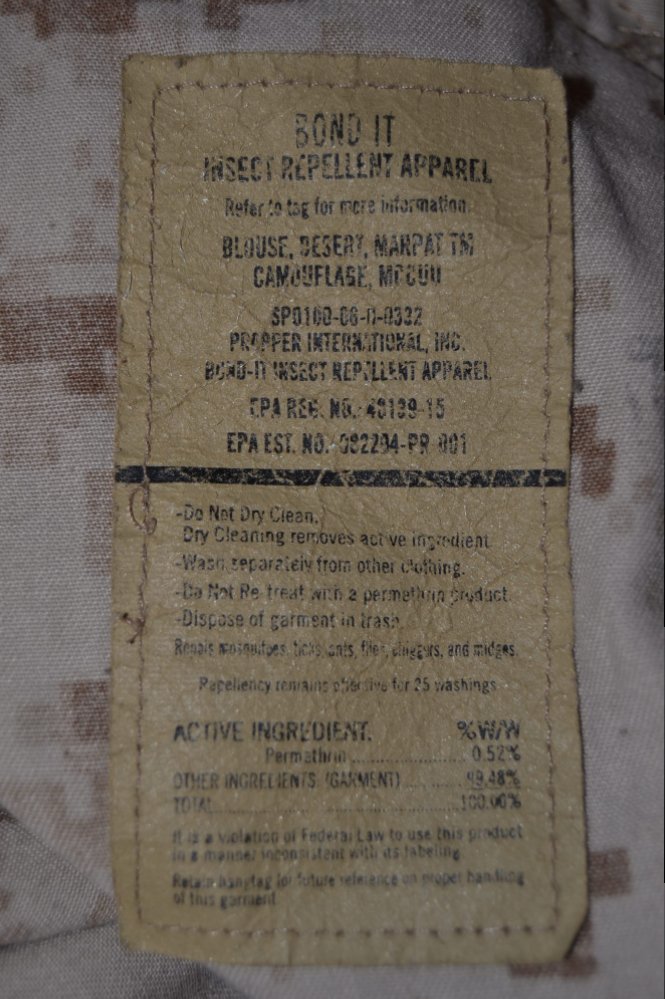 BOND IT
INSECT REPELLENT APPAREL
Refer to tag for more information.
BLOUSE, DESERT, MARPAT TM
CAMOUFLAGE, MCCUU
SP0100-08-D-0332
PROPPER INTERNATIONAL, INC.
BOND-IT INSECT REPELLENT APPAREL
EPA REG. NO.-48139-15
EPA EST. NO.-082294-PR-001
-Do Not Dry Clean.
Dry Cleaning removes active ingredient
-Wash separately from other clothing.
-Do Not Re-treat with a permethrin product
-Dispose of garment in trash.
Repels mosquitoes, ticks, ants, flies, chiggers, and midges.
Repellency remains effective for 25 washings
ACTIVE INGREDIENT. %W/W
Permethrin .................... 0.52%
OTHER INGREDIENTS (GARMENT) .......... 99.48%
TOTAL .................... 100.00%
It is a violation of Federal Law to use this product
in a manner inconsistent with its labeling
Retain hangtag for future reference on proper handling
of this garment